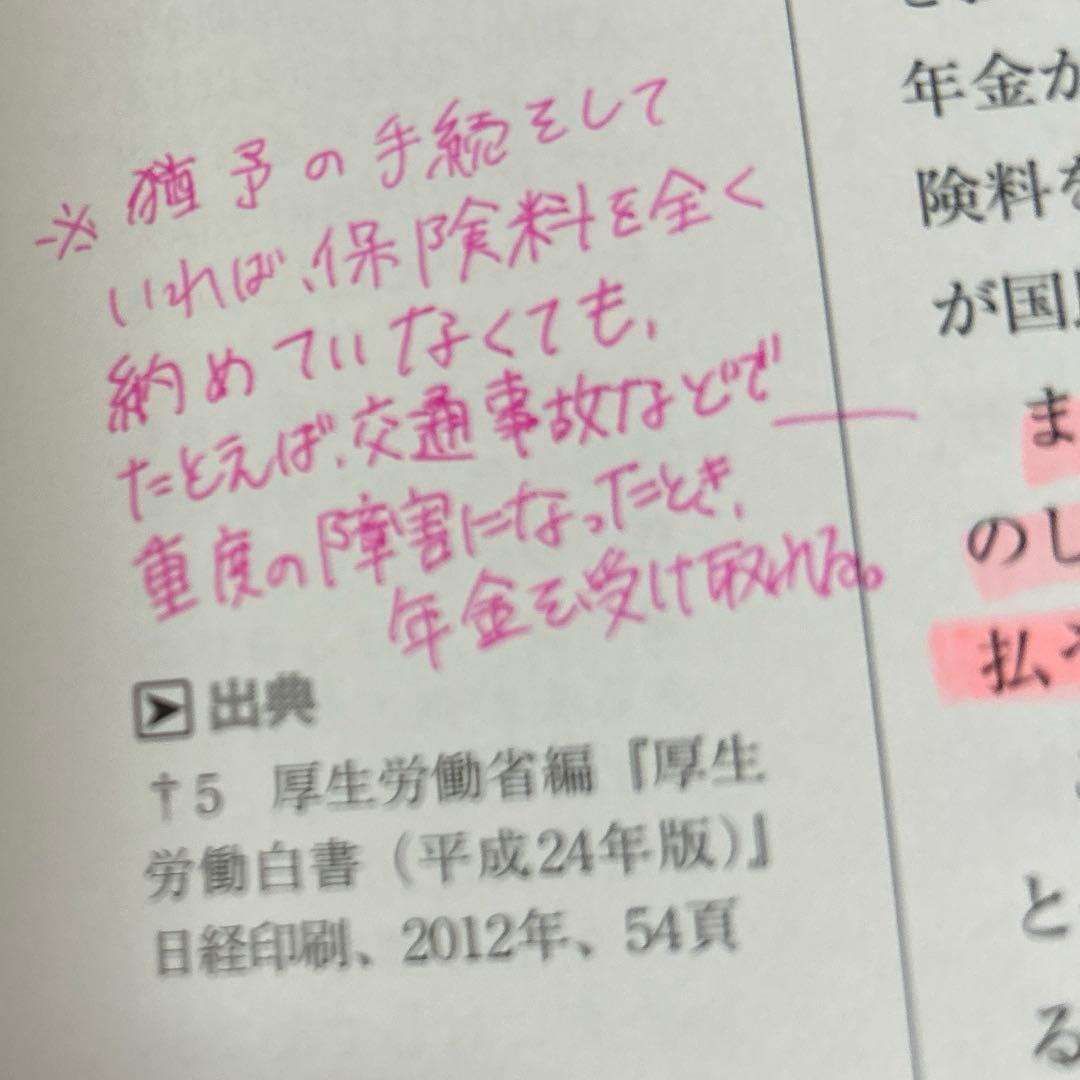 ※ 猶予の手続をして
いれば、保険料を全く
納めていなくても、
たとえば、交通事故などで
重度の障害になったとき、
年金を受け取れる。
出典
†5 厚生労働省編『厚生
労働白書（平成24年版）』
日経印刷、2012年、54頁
年金か
険料を
が国
ま
のし
払
と
る